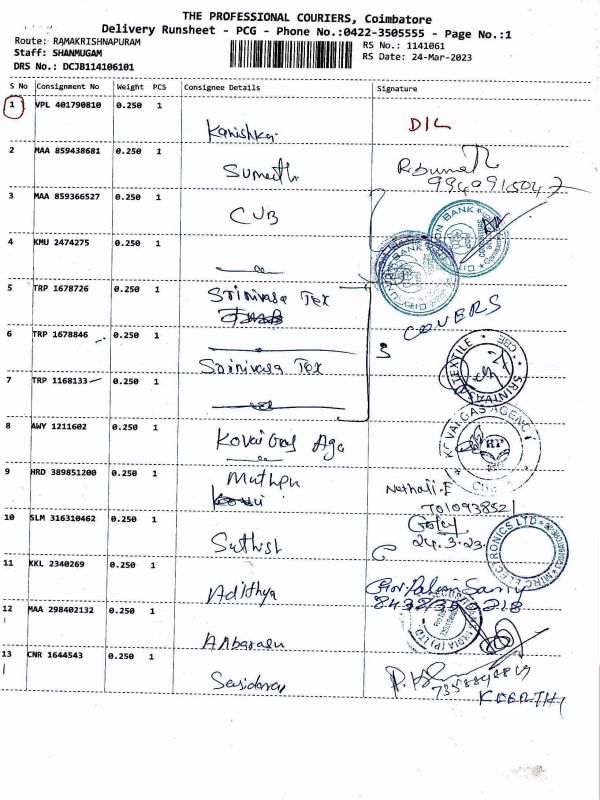 THE PROFESSIONAL COURIERS, Coimbatore
Delivery Runsheet - PCG - Phone No.:0422-3505555 - Page No.:1
Route: RAMAKRISHNAPURAM
RS No.: 1141061
Staff: SHANMUGAM
RS Date: 24-Mar-2023
DRS No.: DCJB114106101
S No Consignment No Weight PCS Consignee Details Signature
1 VPL 401790810 0.250 1
Kanishka
2 MAA 859438681 0.250 1
Sumeeth
3 MAA 859366527 0.250 1
CUB
4 KMU 2474275 0.250 1
5 TRP 1678726 0.250 1
Srinivasa Tex
COVERS
6 TRP 1678846 0.250 1
3
Srinivasa Tex
SRINIVASA TEXTILE CBE
7 TRP 1168133 0.250 1
8 AWY 1211602 0.250 1
Kovai Gas Age
KOVAI GAS AGENCY
9 HRD 389851200 0.250 1
Muthu
7010938521
10 SLM 316310462 0.250 1
24.3.23
Sathish
MIRC ELECTRONICS LTD
11 KKL 2340269 0.250 1
Adithya
12 MAA 298402132 0.250 1
Anbarasu
13 CNR 1644543 0.250 1
KEERTHY